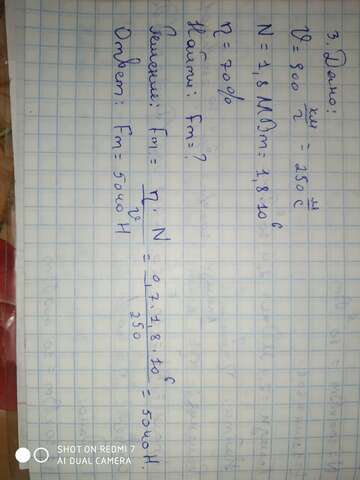 3. Дано:
V = 900 км/г = 250 м/с
N = 1,8 МВт = 1,8 · 10⁶
η = 70%
Найти: Fт = ?
Решение: Fт = η · N / V = 0,7 · 1,8 · 10⁶ / 250 = 5040 Н
Ответ: Fт = 5040 Н
SHOT ON REDMI 7
AI DUAL CAMERA